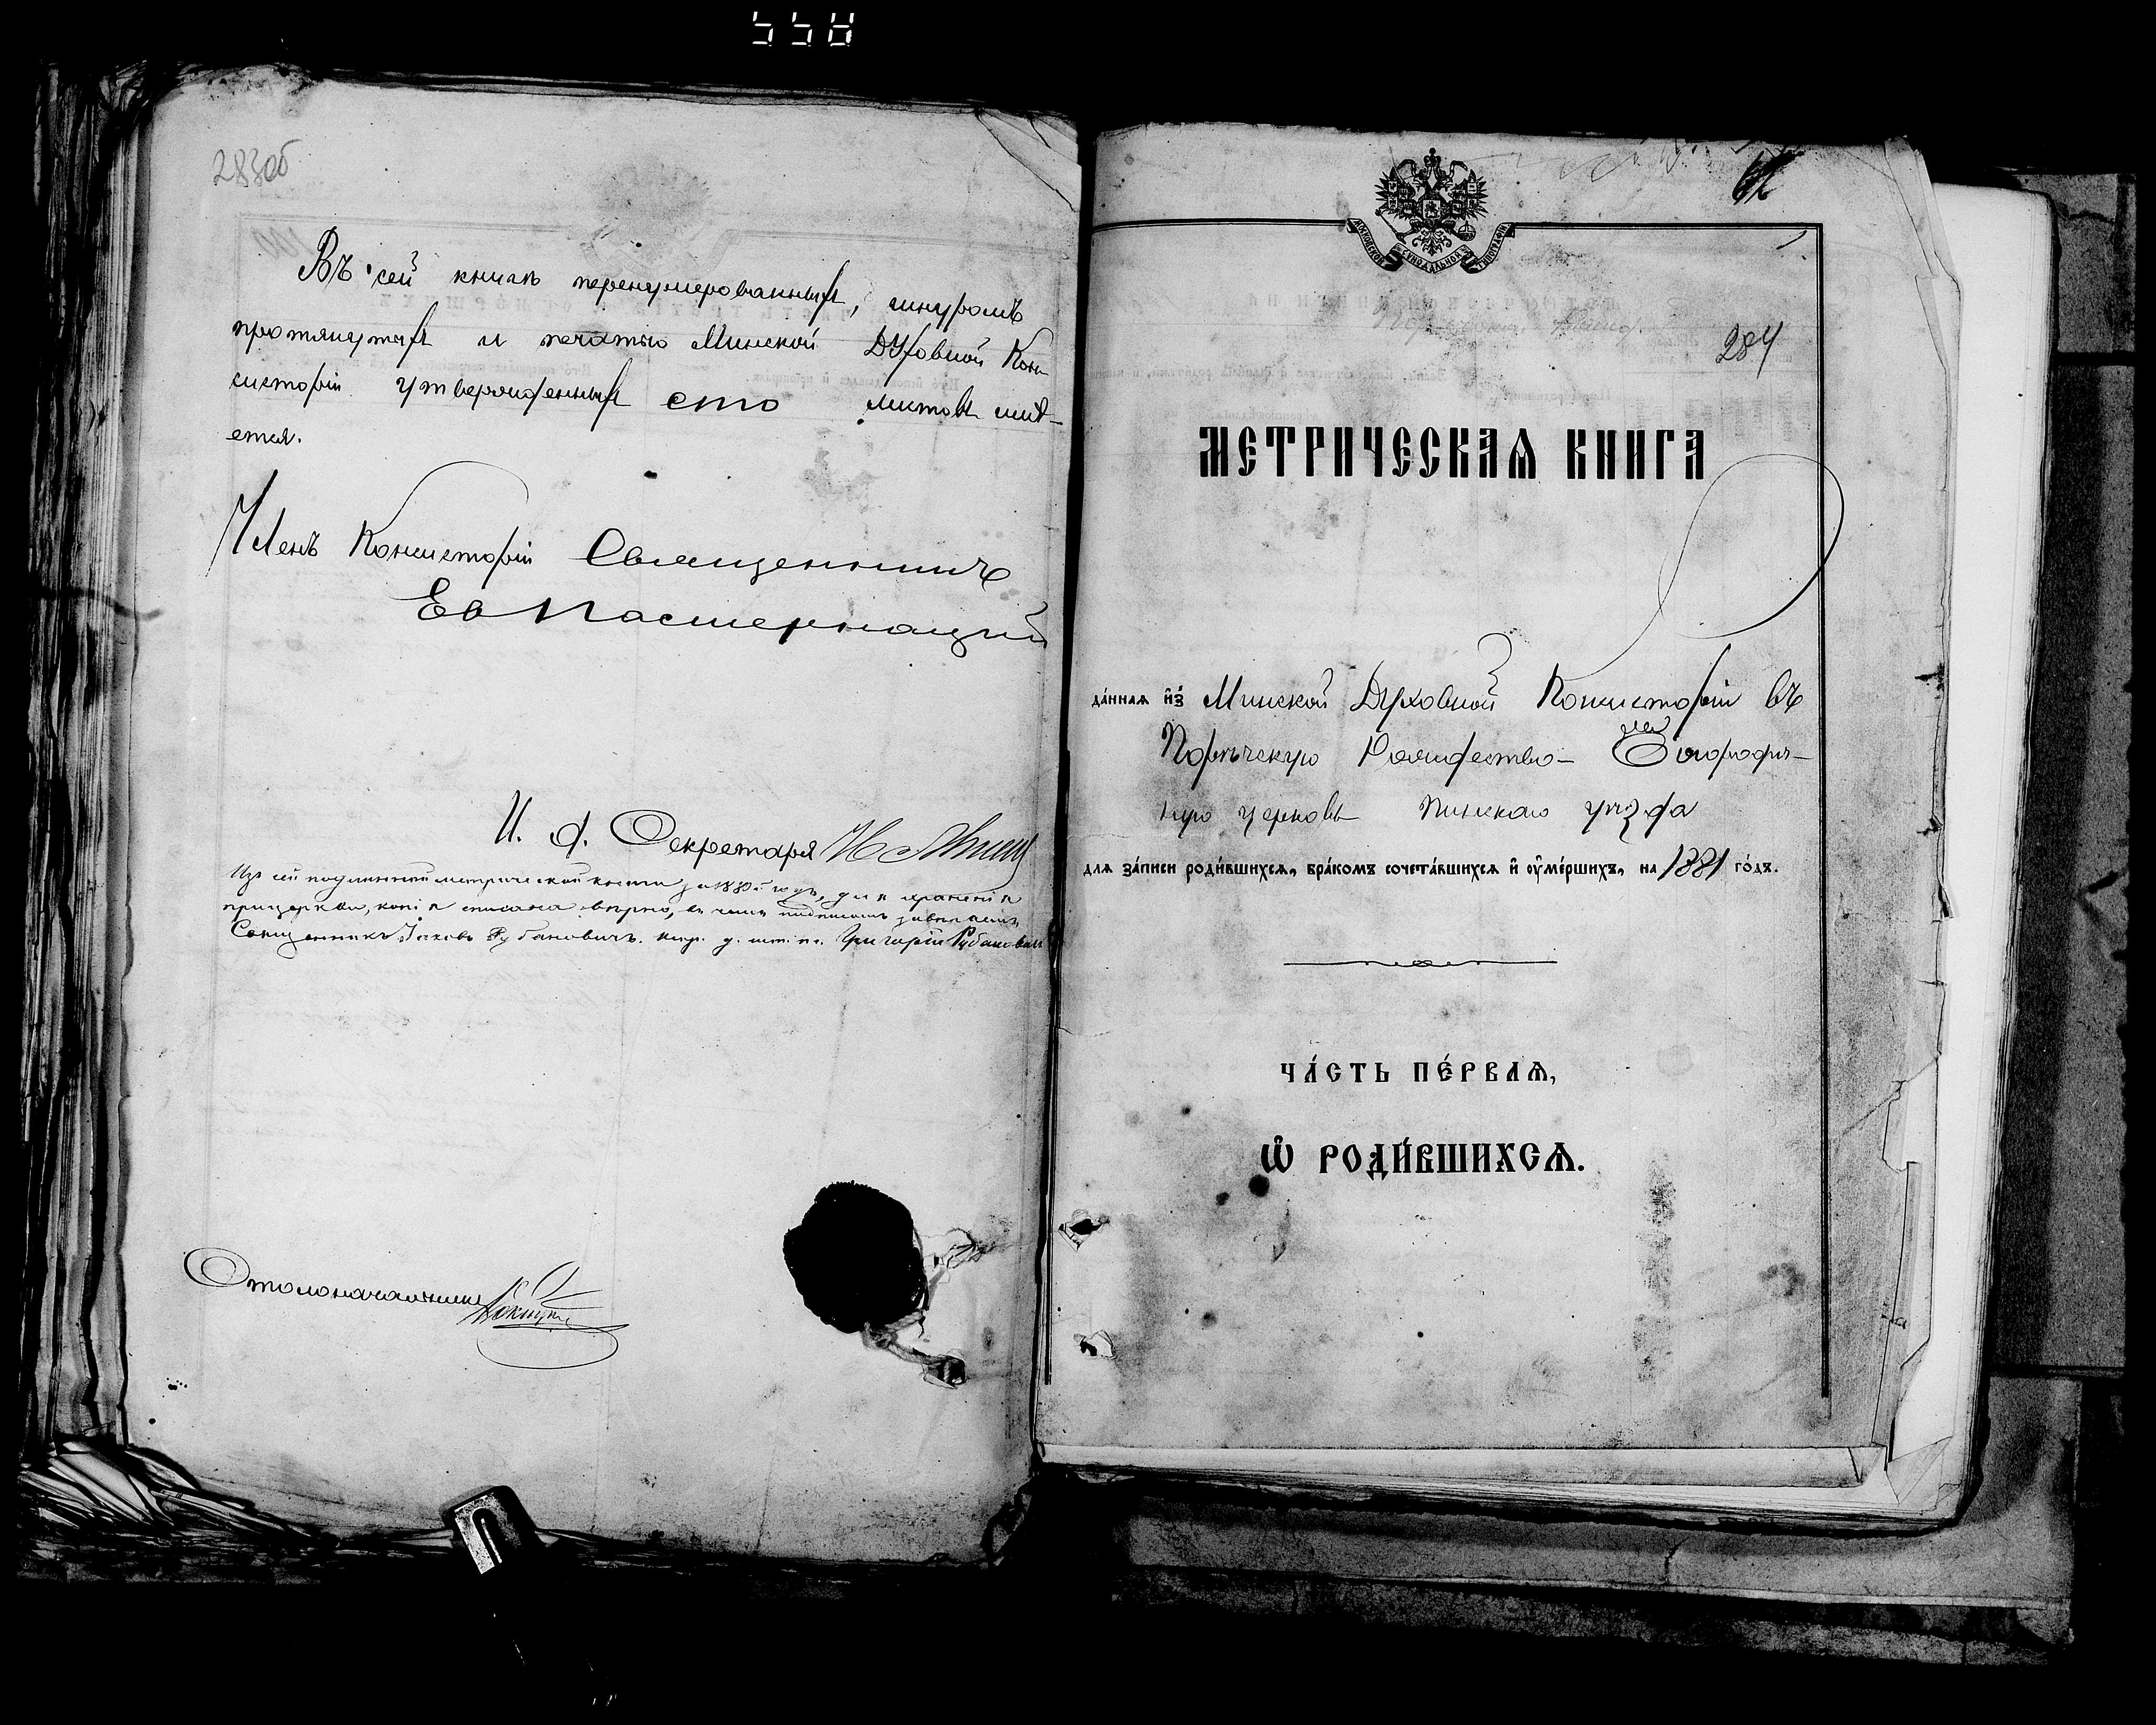 558
283об
Въ сей книгѣ перенумерованныхъ, шнуромъ
протянутыхъ и печатью Минской Духовной Кон-
систоріи утвержденныхъ сто листовъ имѣ-
ется.
Членъ Консисторіи Священникъ
Ев Пастернацкій
И. д. Секретаря
Изъ сей подлинной метрической книги за 1880й годъ, для храненія
при церкви, копія списана вѣрно, въ чемъ подписомъ завѣряемъ
Священникъ Іаковъ Рубановичъ. Григорій Рубановичъ
Столоначальникъ
62
МОСКОВСКОЙ СѴНОДАЛЬНОЙ ТИПОГРАФІИ
284
МЕТРИЧЕСКАѦ КНИГА
да́ннаѧ и҆з̾ Минской Духовной Консисторіи въ
Порѣчскую Рождество-Богороди-
чную церковь Пинскаго уѣзда
длѧ за́писи роди́вшихсѧ, бра́комъ сочета́вшихсѧ и҆ ᲂу҆ме́ршихъ, на 1881 го́дъ.
ЧА́СТЬ ПЕ́РВАѦ,
Ѡ҆ РОДИ́ВШИХСѦ.